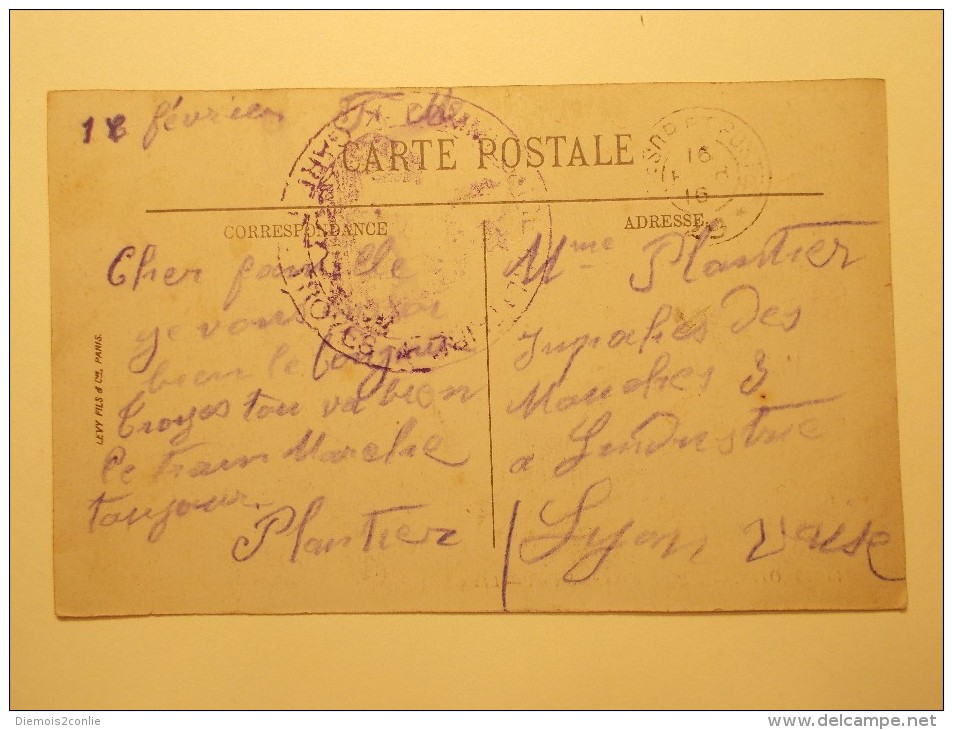 février
CARTE POSTALE
CORRESPONDANCE
ADRESSE
16
16
Cher famille
je vous
bien le bonjour
Troyes tou va bien
le train Marche
toujour.
Plantier
Mme Plantier
Impasses des
Mouches 3
a Industrie
Lyon Vaise
LEVY FILS & Cie, PARIS.
Diemois2conlie
www.delcampe.net